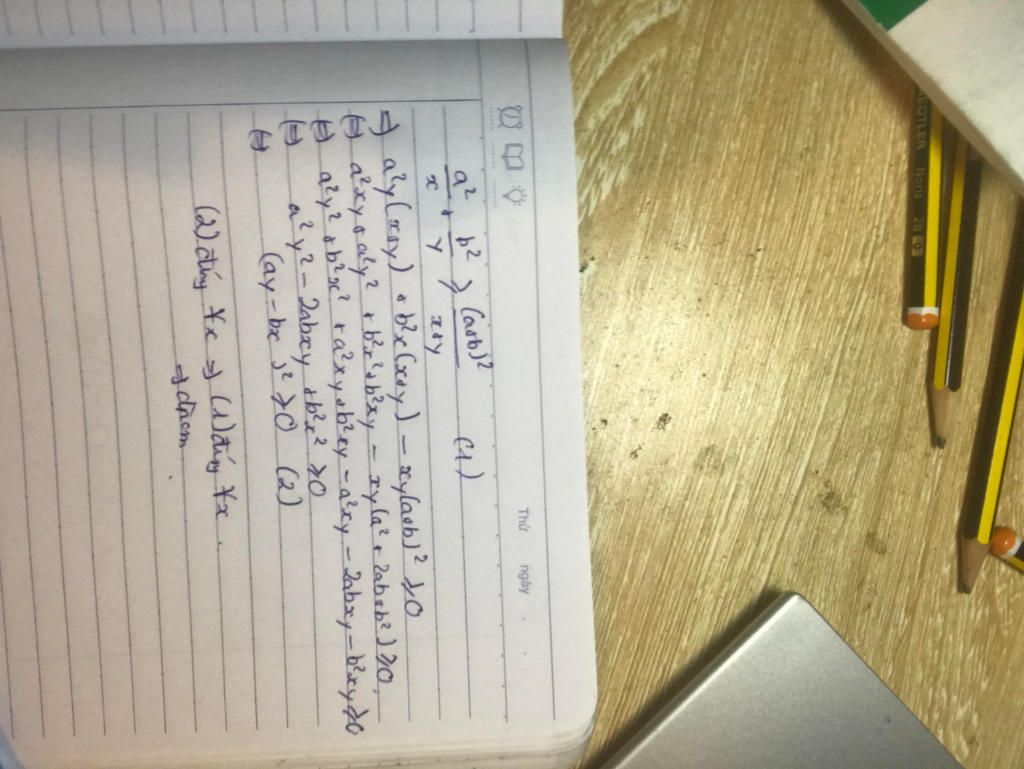 Thứ ngày
a²/x + b²/y ≥ (a+b)²/x+y (1)
=) a²y(x+y) + b²x(x+y) - xy(a+b)² ≥ 0
(=) a²xy + a²y² + b²x² + b²xy - xy(a² + 2ab + b²) ≥ 0
(=) a²y² + b²x² + a²xy + b²xy - a²xy - 2abxy - b²xy ≥ 0
(=) a²y² - 2abxy + b²x² ≥ 0
(=) (ay - bx)² ≥ 0 (2)
(2) đúng ∀x => (1) đúng ∀x.
=) đpcm
Noris 2B